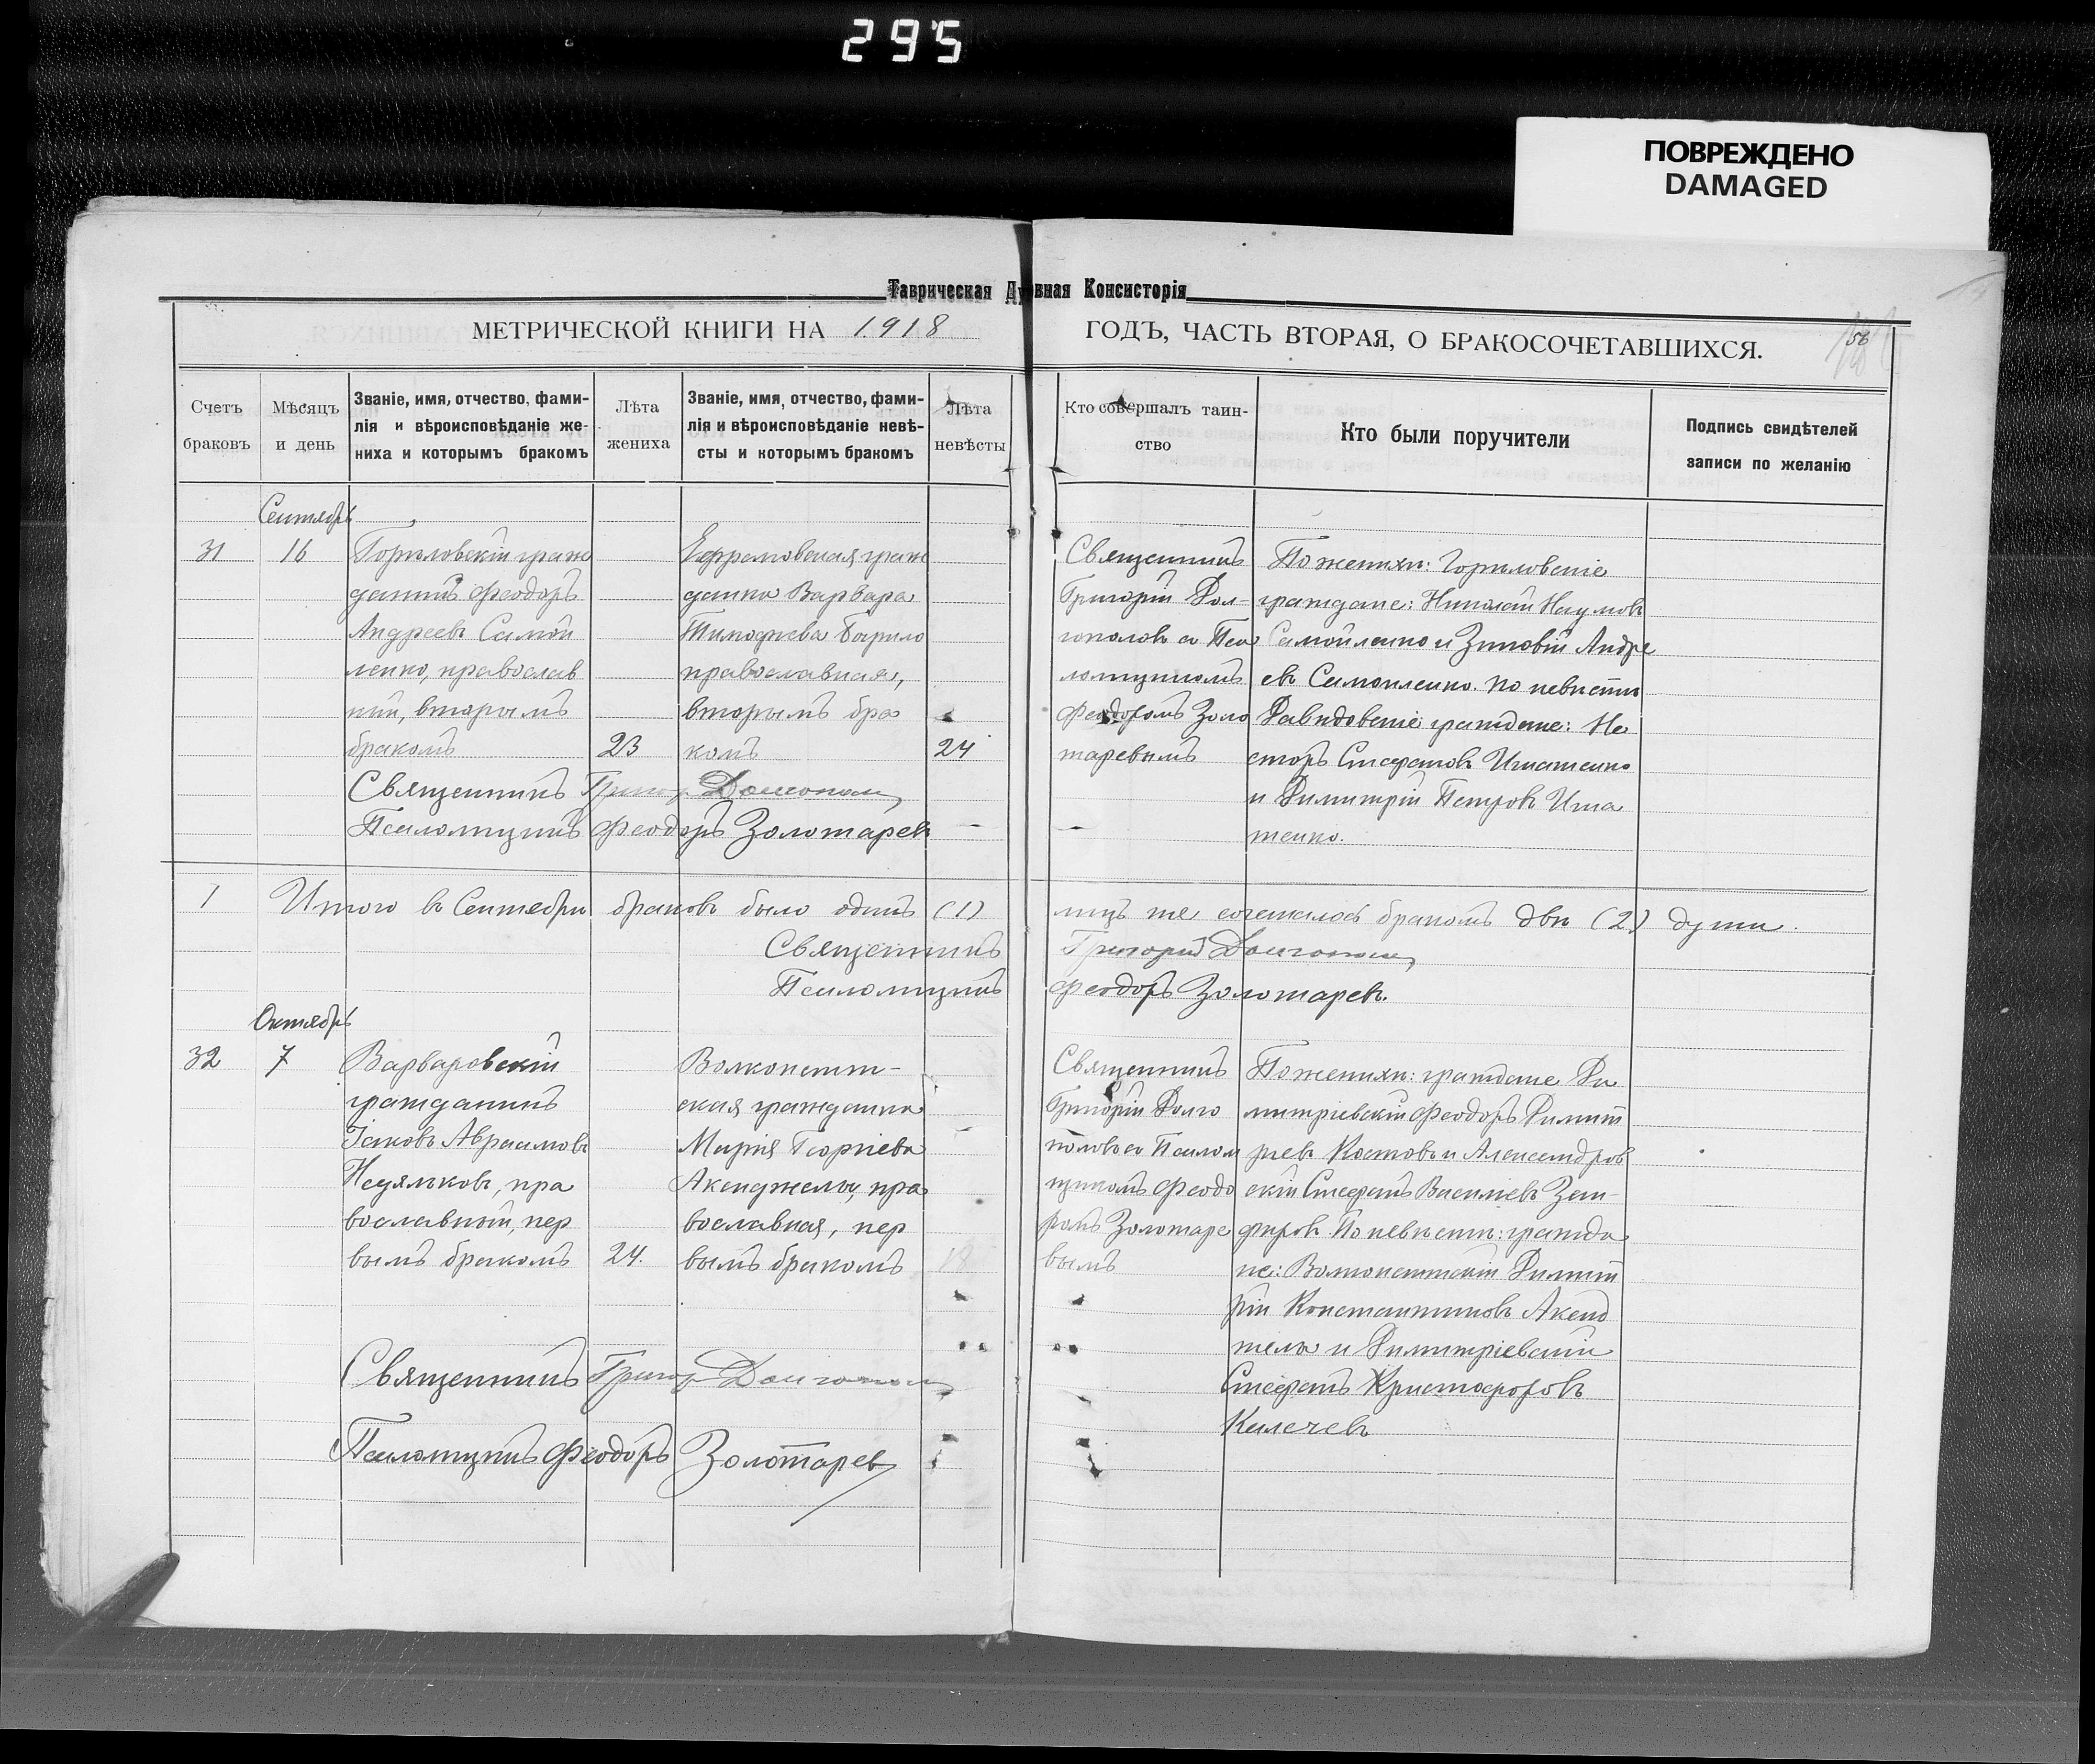 295
ПОВРЕЖДЕНО
DAMAGED
Таврическая Духовная Консисторія
МЕТРИЧЕСКОЙ КНИГИ НА 1918
ГОДЪ, ЧАСТЬ ВТОРАЯ, О БРАКОСОЧЕТАВШИХСЯ.
58
Счетъ
браковъ
Мѣсяцъ
и день
Званіе, имя, отчество, фами-
лія и вѣроисповѣданіе же-
ниха и которымъ бракомъ
Лѣта
жениха
Званіе, имя, отчество, фами-
лія и вѣроисповѣданіе невѣ-
сты и которымъ бракомъ
Лѣта
невѣсты
Кто совершалъ таин-
ство
Кто были поручители
Подпись свидѣтелей
записи по желанію
Сентябрь
31
16
Горѣловскій граж
данинъ Феодоръ
Андреевъ Самой
ленко, православ
ный, вторымъ
бракомъ
23
Ефремовская граж
данка Варвара
Тимофѣева
православная,
вторымъ бра
комъ
24
Священникъ
Григорій Дол-
гополовъ съ Пса
ломщикомъ
Феодоромъ Золо
таревымъ
По женихѣ: Горѣловскіе
граждане: Николай Наумовъ
Самойленко и Зиновій Андре
евъ Самойленко. По невѣстѣ
Давидовскіе граждане: Не
сторъ Стефановъ Игнатенко
и Димитрій Петровъ Игна
тенко.
Священникъ Григор Долгополов
Псаломщикъ Феодоръ Золотаревъ
1
Итого въ Сентябрѣ браковъ было одинъ (1)
лицъ же сочеталось бракомъ двѣ (2) души.
Священникъ
Григорій Долгополов
Псаломщикъ
Феодоръ Золотаревъ.
Октябрь
32
7
Варваровскій
гражданинъ
Іаковъ Авраамовъ
Недялковъ, пра
вославный, пер
вымъ бракомъ
24.
Волконешт-
ская гражданка
Марія Георгіева
Акенджелы, пра
вославная, пер
вымъ бракомъ
18
Священникъ
Григорій Долго
половъ съ Псалом
щикомъ Феодо
ромъ Золотаре
вымъ
По женихѣ: граждане Ди
митріевскій Феодоръ Димит
ріевъ Костовъ и Александров
скій Стефанъ Василіевъ Зам-
фировъ По невѣстѣ: гражда
не: Волконештскій Димит
рій Константиновъ Акенд
желы и Димитріевскій
Стефанъ Христофоровъ
Калечевъ
Священникъ Григор Долгополов
Псаломщикъ Феодоръ Золотарев